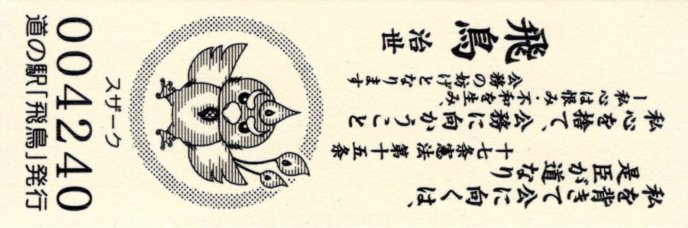 私を背きて公に向くは、
是臣が道なり
十七条憲法 第十五条
私心を捨て、公務に向かうこと
ー私心は恨み・不和を生み、
公務の妨げとなります
飛鳥 治世
スザーク
004240
道の駅「飛鳥」発行